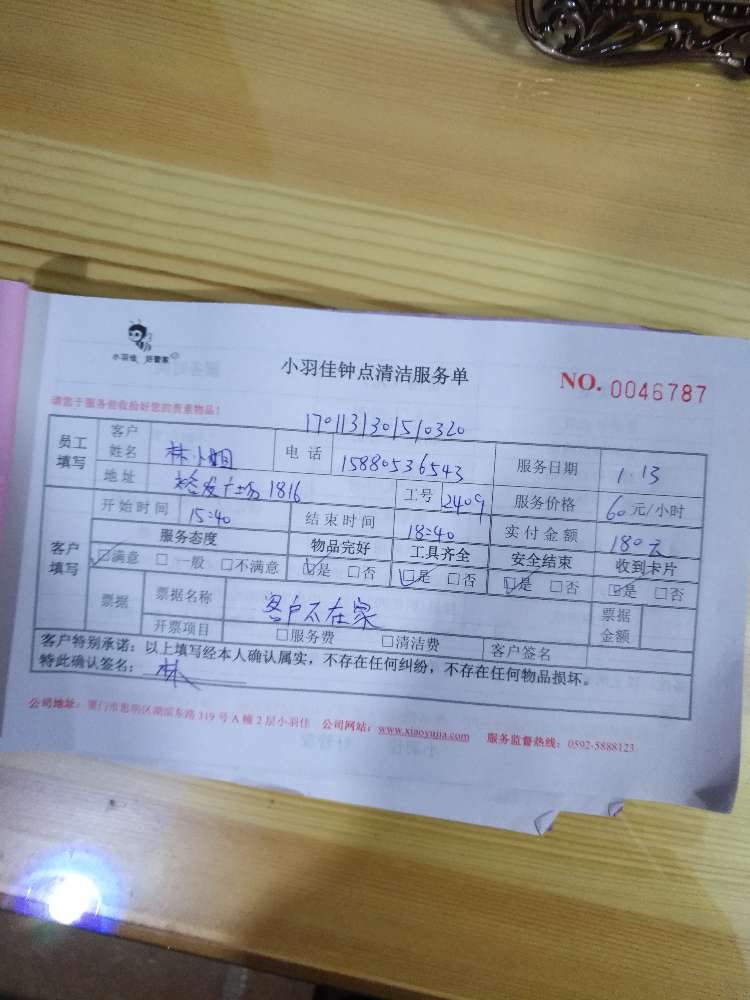 小羽佳 好管家
小羽佳钟点清洁服务单
NO. 0046787
请您于服务前收拾好您的贵重物品！
1701131301510320
员工填写 客户姓名 林小姐 电话 15880536543 服务日期 1.13
地址 裕发广场 1816 工号 2409 服务价格 60元/小时
客户填写 开始时间 15:40 结束时间 18:40 实付金额 180元
服务态度 物品完好 工具齐全 安全结束 收到卡片
☑满意 □一般 □不满意 ☑是 □否 ☑是 □否 ☑是 □否 ☑是 □否
票据 票据名称 客户不在家 票据金额
开票项目 □服务费 □清洁费 客户签名
客户特别承诺：以上填写经本人确认属实，不存在任何纠纷，不存在任何物品损坏。
特此确认签名： 林
公司地址：厦门市思明区湖滨东路 319 号 A 幢 2 层小羽佳 公司网站：www.xiaoyujia.com 服务监督热线：0592-5888123